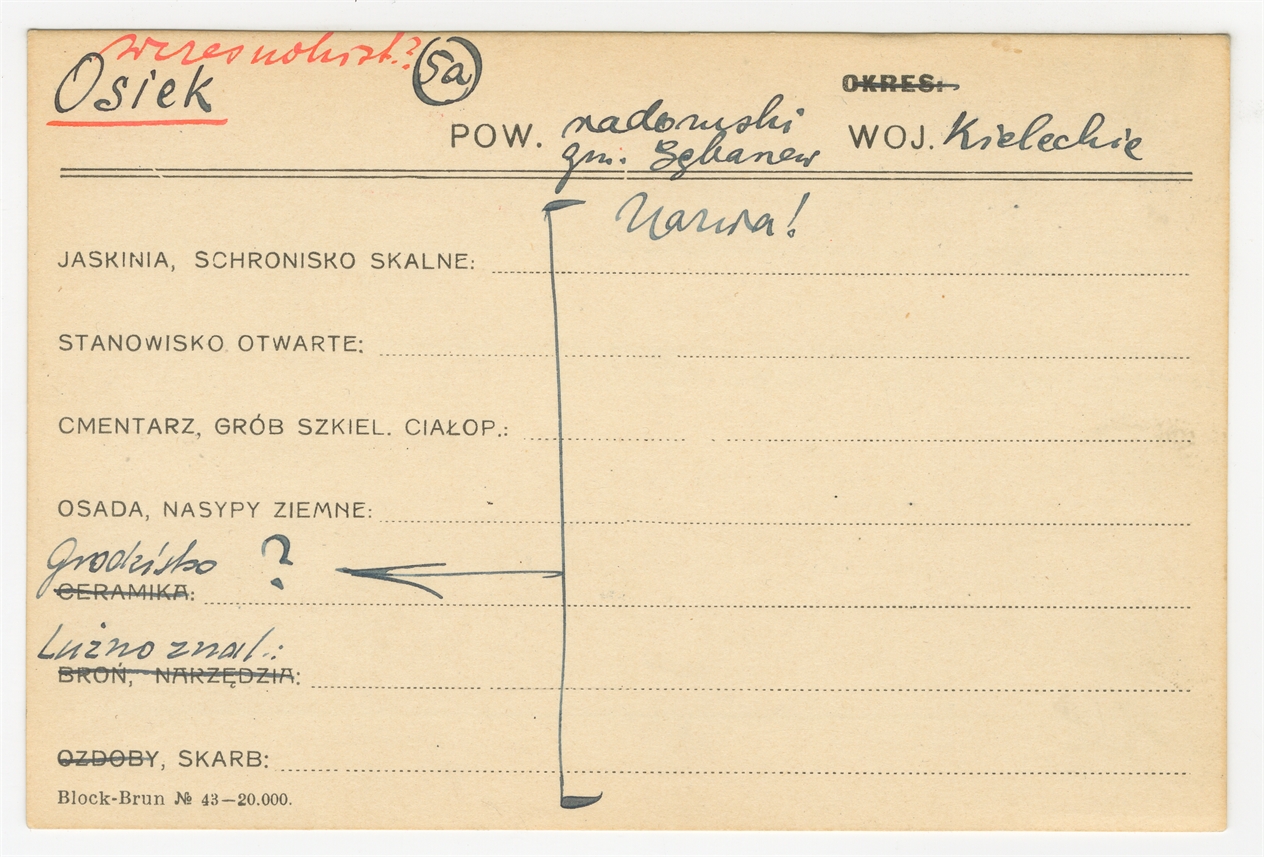 wczesnohist.?
Osiek
5a
OKRES:
POW. radomski WOJ. Kieleckie
gm. Gębarzew
Nazwa!
JASKINIA, SCHRONISKO SKALNE:
STANOWISKO OTWARTE:
CMENTARZ, GRÓB SZKIEL. CIAŁOP.:
OSADA, NASYPY ZIEMNE:
Grodzisko ?
CERAMIKA:
Luźno znal.:
BROŃ, NARZĘDZIA:
OZDOBY, SKARB:
Block-Brun № 43—20.000.